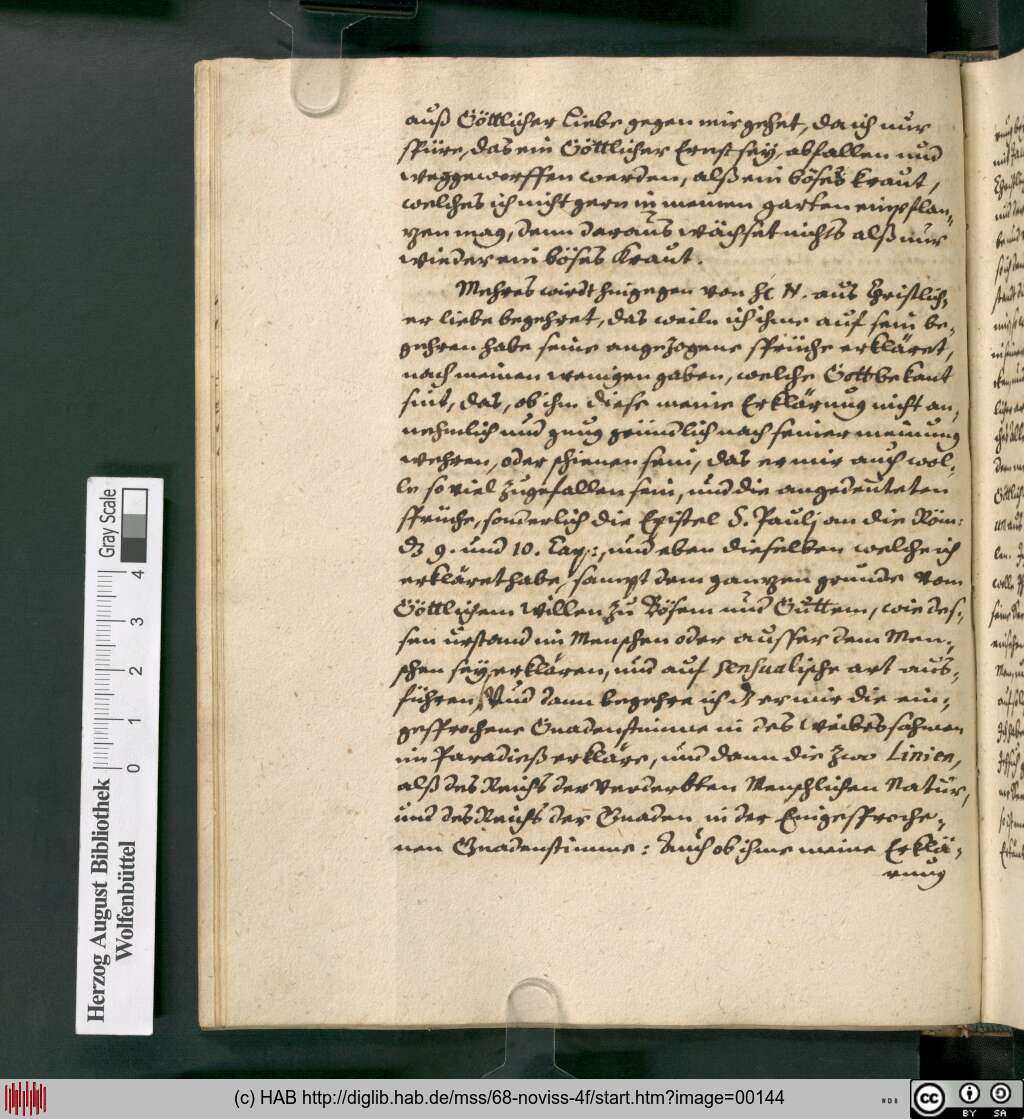 auß Göttlicher Liebe gegen mir gehet, da ich nur
spüre, das ein Göttlicher Ernst sey, abfallen und
weggeworffen werden, alß ein böses kraut,
welches ich nicht gern in meinen garten einpflan-
zen mag, denn daraus wächset nichts alß nur
wieder ein böses Kraut.
Mehres wirdt hingegen von H. N. aus Christlich-
er liebe begehret, das weiln ich ihme auf sein be-
gehren habe seine angezogene sprüche erkläret,
nach meinen wenigen gaben, welche Gott bekant
sint, das, ob ihm diese meine Erklärung nicht an-
nehmlich und gnug gründlich nach seiner meinung
wehren, oder schienen sein, das er mir auch wol-
le so viel zugefallen sein, und die angedeuteten
sprüche, sonderlich die Epistel S. Paulj an die Röm:
dz 9. und 10. Cap:, und eben dieselben welche ich
erkläret habe, sampt dem ganzen grunde vom
Göttlichem Willen zu Bösem und Guttem, wie des-
sen urstand im Menschen oder ausser dem Men-
schen sey erklären, und auf sensualische art aus-
führen, Und dann begehre ich dz er mir die ein-
gesprochene Gnadenstimme in des Weibes sahmen
im Paradieß erkläre, und dann die zwo Linien,
alß des Reichs der verderbten Menschlichen Natur,
und des Reichs der Gnaden in der Eingesproche-
nen Gnadenstimme: Auch ob ihme meine Erklä-
rung
Herzog August Bibliothek
Wolfenbüttel
0 1 2 3 4
Gray Scale
(c) HAB http://diglib.hab.de/mss/68-noviss-4f/start.htm?image=00144
cc BY SA